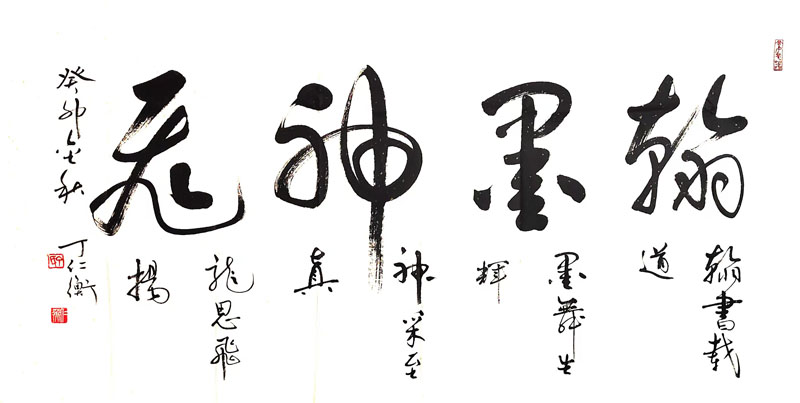 翰墨神龙
翰書載
道
墨舞生
輝
神采至
真
龍思飛
揚
癸卯金秋
丁仁衡